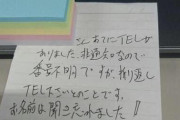 あてにTELが
ありました。非通知なので
番号不明ですが、折り返し
TEL下さいとのことです。
お名前は聞き忘れました!!